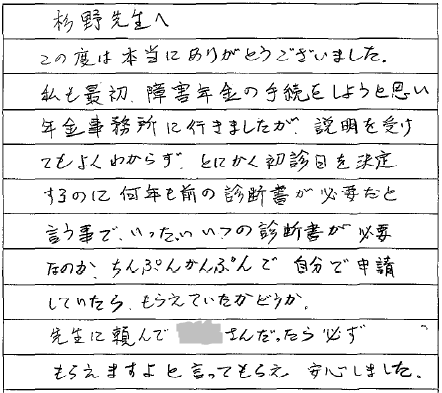 杉野先生へ
この度は本当にありがとうございました。
私も最初、障害年金の手続をしようと思い
年金事務所に行きましたが、説明を受け
てもよくわからず、とにかく初診日を決定
するのに何年も前の診断書が必要だと
言う事で、いったいいつの診断書が必要
なのか、ちんぷんかんぷんで 自分で申請
していたら、もらえていたかどうか。
先生に頼んで さんだったら必ず
もらえますよと言ってもらえ 安心しました。